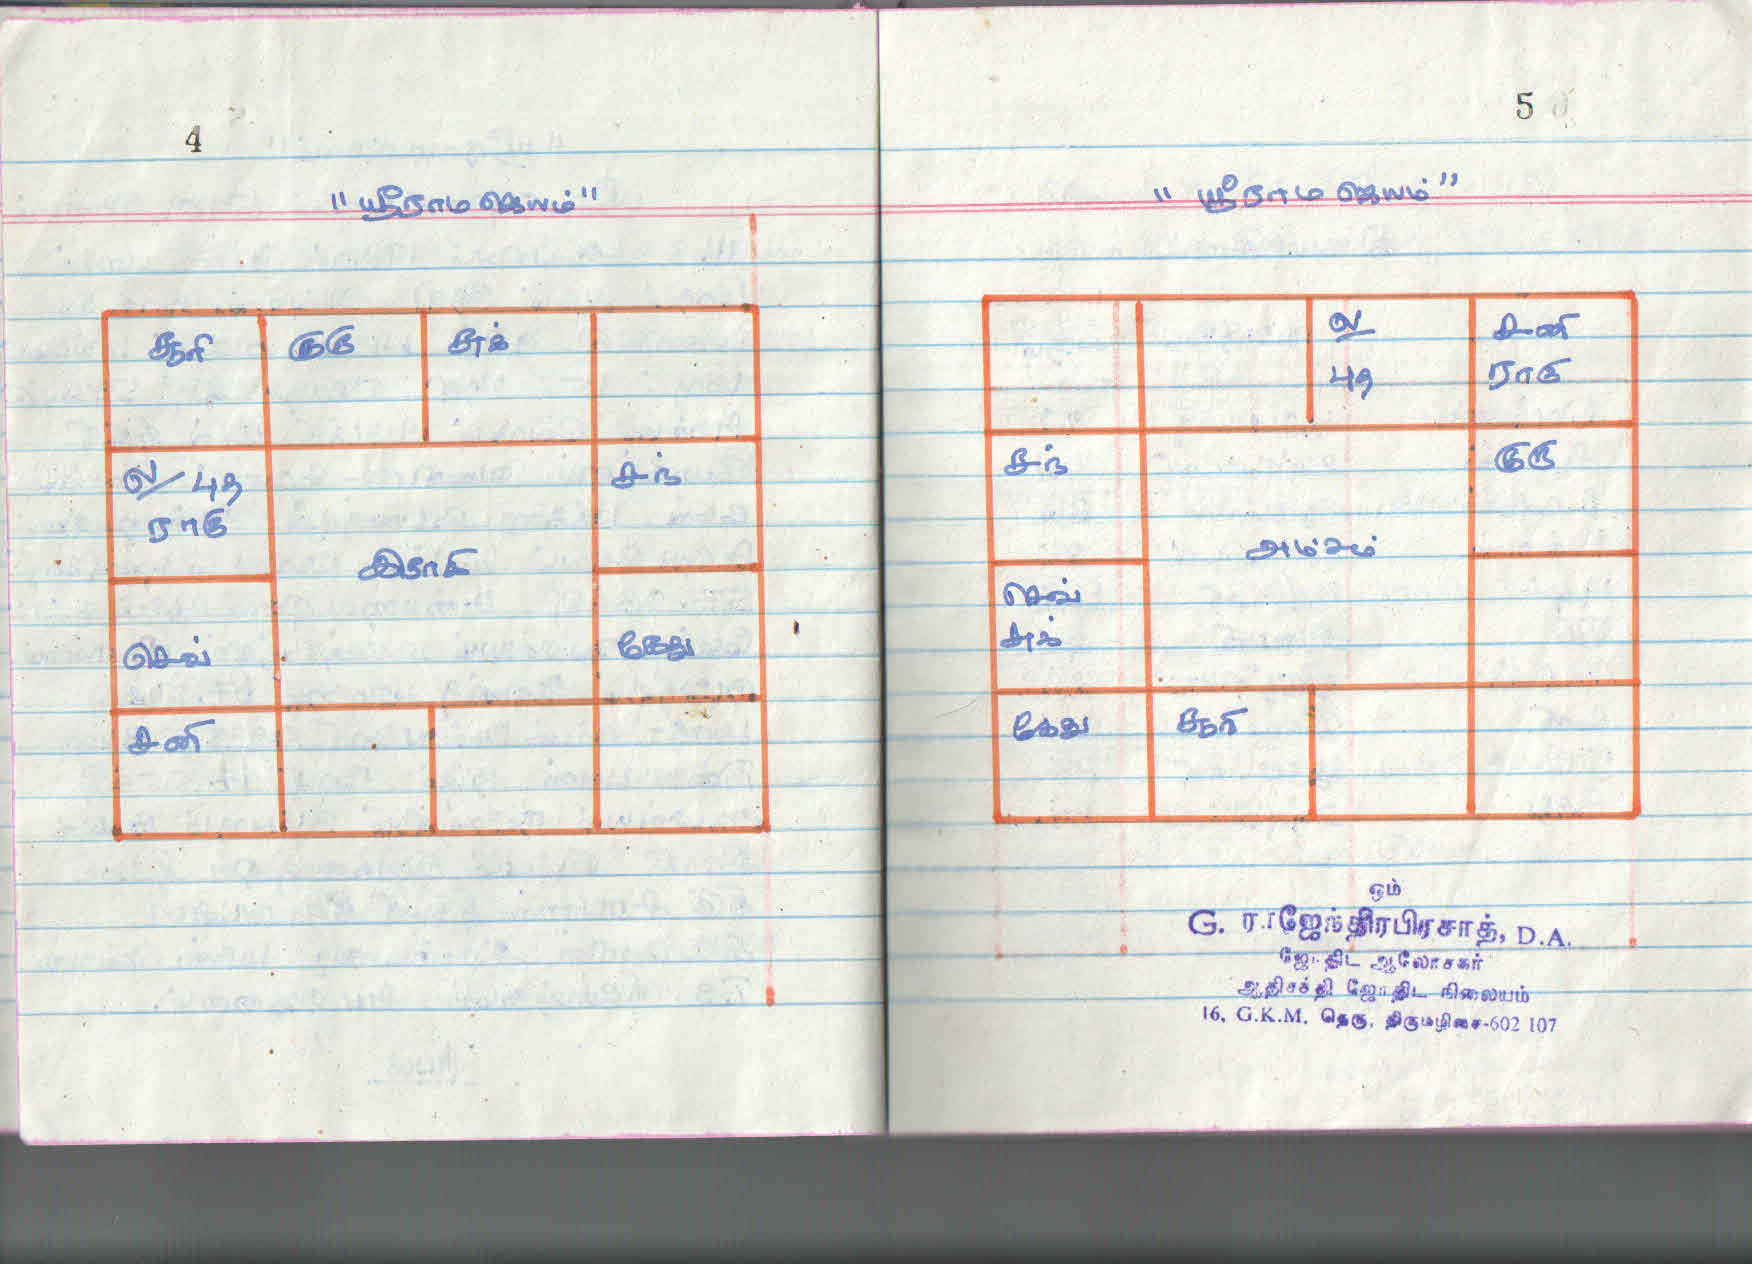 4
"ஸ்ரீராம ஜெயம்"
சூரி குரு சுக்
ல/ புத சந்
ராகு
இராசி
செவ் கேது
சனி
5
"ஸ்ரீராம ஜெயம்"
ல/ சனி
புத ராகு
சந் குரு
அம்சம்
செவ்
சுக்
கேது சூரி
ஓம்
G. ராஜேந்திரபிரசாத், D.A.
ஜோதிட ஆலோசகர்
ஆதிசக்தி ஜோதிட நிலையம்
16, G.K.M. தெரு, திருமழிசை-602 107